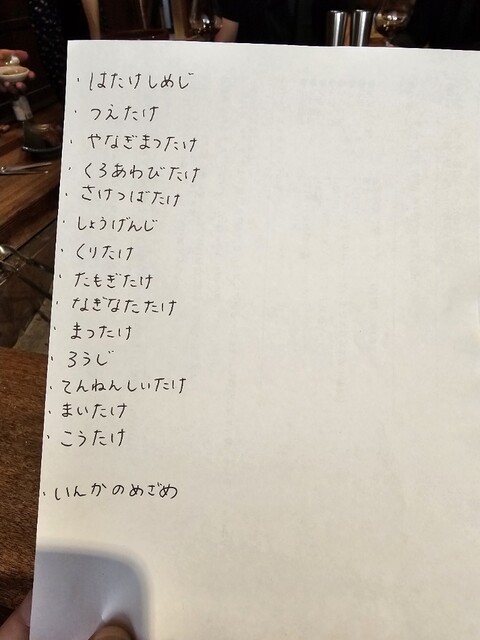 ・はたけしめじ
・つえたけ
・やなぎまつたけ
・くろあわびたけ
・さけつばたけ
・しょうげんじ
・くりたけ
・たもぎたけ
・なぎなたたけ
・まったけ
・ろうじ
・てんねんしいたけ
・まいたけ
・こうたけ
・いんかのめざめ